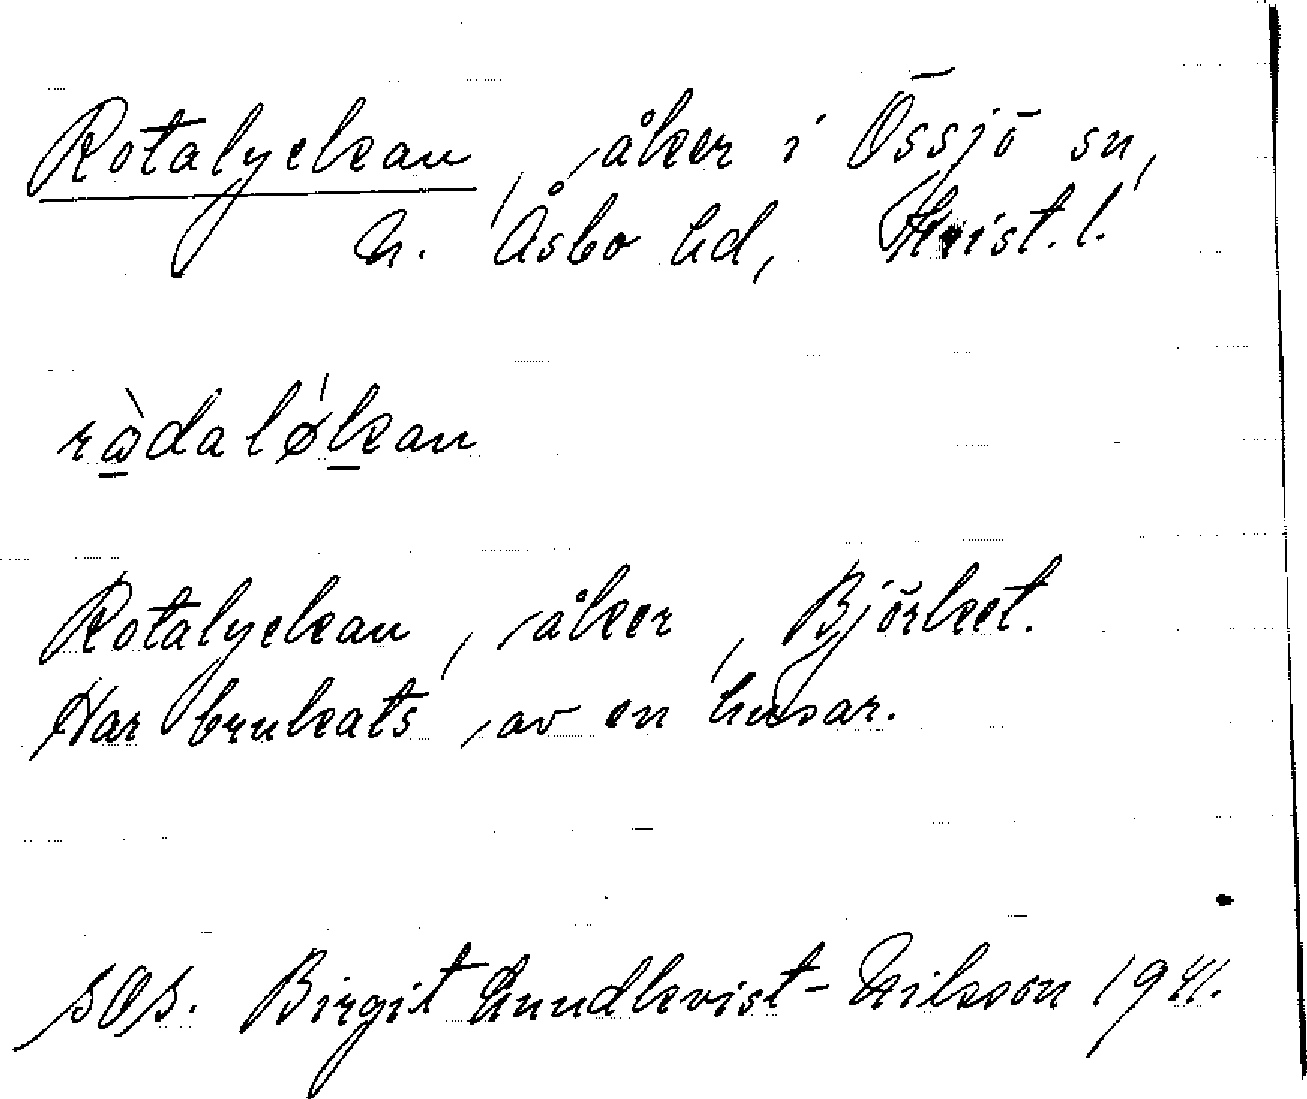 Rotalyckan, åker i Össjö sn,
N. Åsbo hd, Krist. l.
rὼdalǿkan
Rotalyckan, åker, Björket.
Har brukats av en husar.
sOs. Birgit Lundkvist-Nilsson 1941.